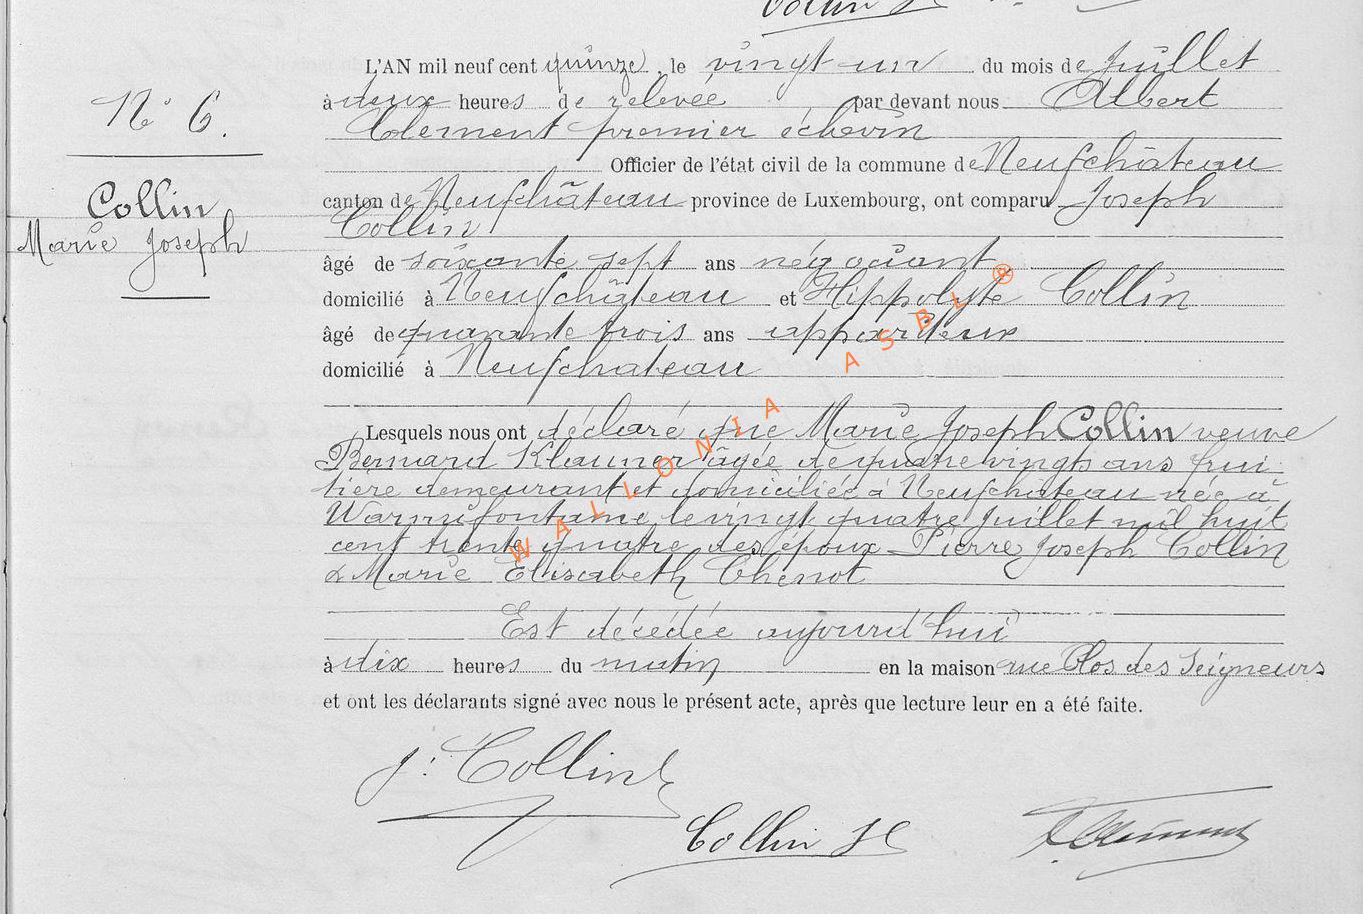 Collin H
L'AN mil neuf cent quinze, le vingt-un du mois de Juillet
N° 6.
à deux heures de relevée par devant nous Albert
Clément premier échevin
Officier de l'état civil de la commune de Neufchâteau
Collin
Marie Joseph
canton de Neufchâteau province de Luxembourg, ont comparu Joseph
Collin
âgé de soixante sept ans négociant
domicilié à Neufchâteau et Hippolyte Collin
âgé de quarante trois ans appariteur
domicilié à Neufchateau
WALLONIA ASBL ®
Lesquels nous ont déclaré que Marie Joseph Collin veuve
Bernard Klauner âgée de quatre vingts ans frui
tière demeurant et domiciliée à Neufchateau née à
Warmifontaine le vingt quatre Juillet mil huit
cent trente quatre des époux Pierre Joseph Collin
& Marie Elisabeth Chenot
Est décédée aujourd'hui
à dix heures du matin en la maison rue Clos des Seigneurs
et ont les déclarants signé avec nous le présent acte, après que lecture leur en a été faite.
J. Collin
Collin H
A Clément